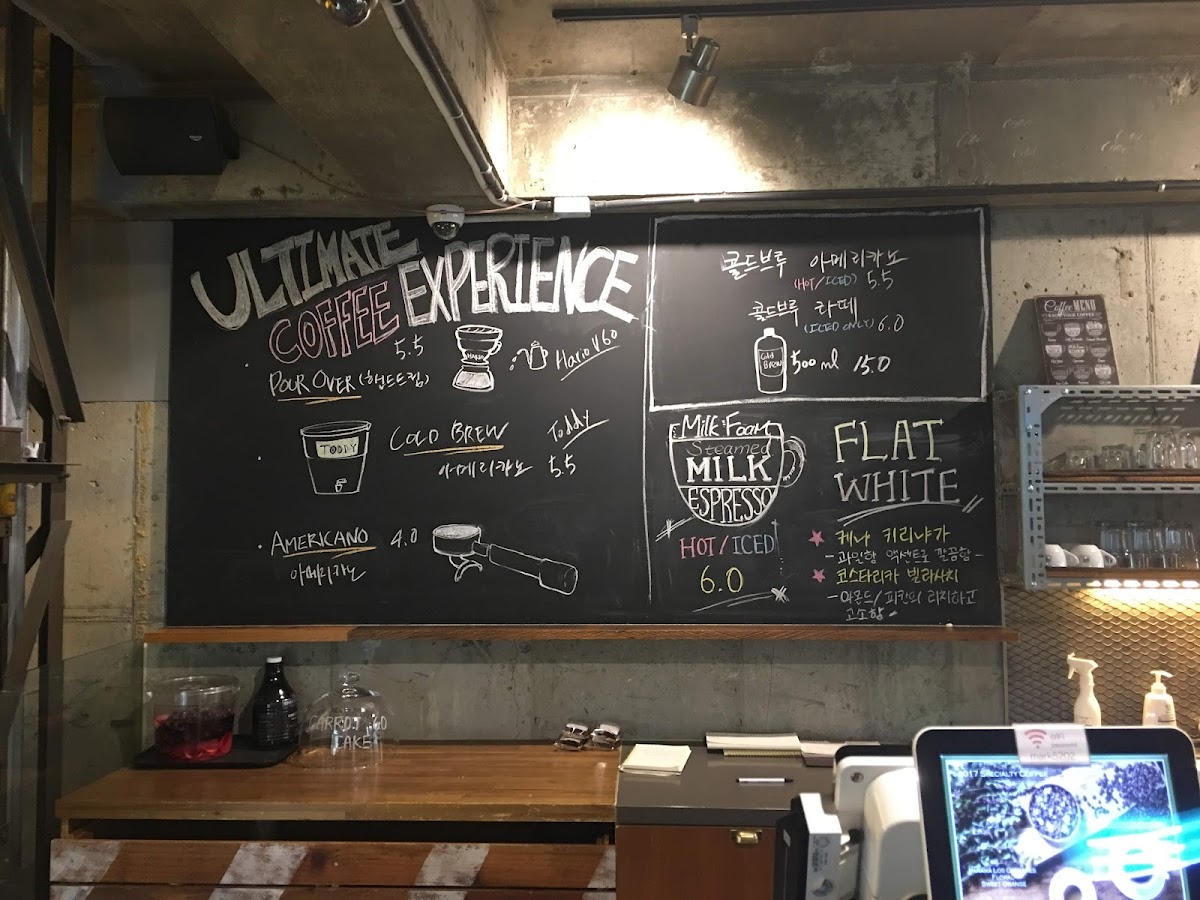 ULTIMATE
COFFEE EXPERIENCE
5.5
HARIO
Hario V60
POUR OVER (핸드드립)
TODDY
COLD BREW Toddy
아메리카노 5.5
AMERICANO 4.0
아메리카노
콜드브루 아메리카노
(HOT/ICED) 5.5
콜드브루 라떼
(ICED ONLY) 6.0
Cold
BREW
500 ml 15.0
Milk Foam
Steamed
MILK
ESPRESSO
HOT/ICED
6.0
FLAT
WHITE
케냐 키리냐가
- 과일향 액센트로 깔끔함 -
코스타리카 빌라사치
- 아몬드/피칸의 리치하고
고소함 -
Coffee MENU
CARROT 6.0
CAKE
WiFi
password
mark5202
2017 SPECIALTY COFFEE
FLORAL
SWEET ORANGE